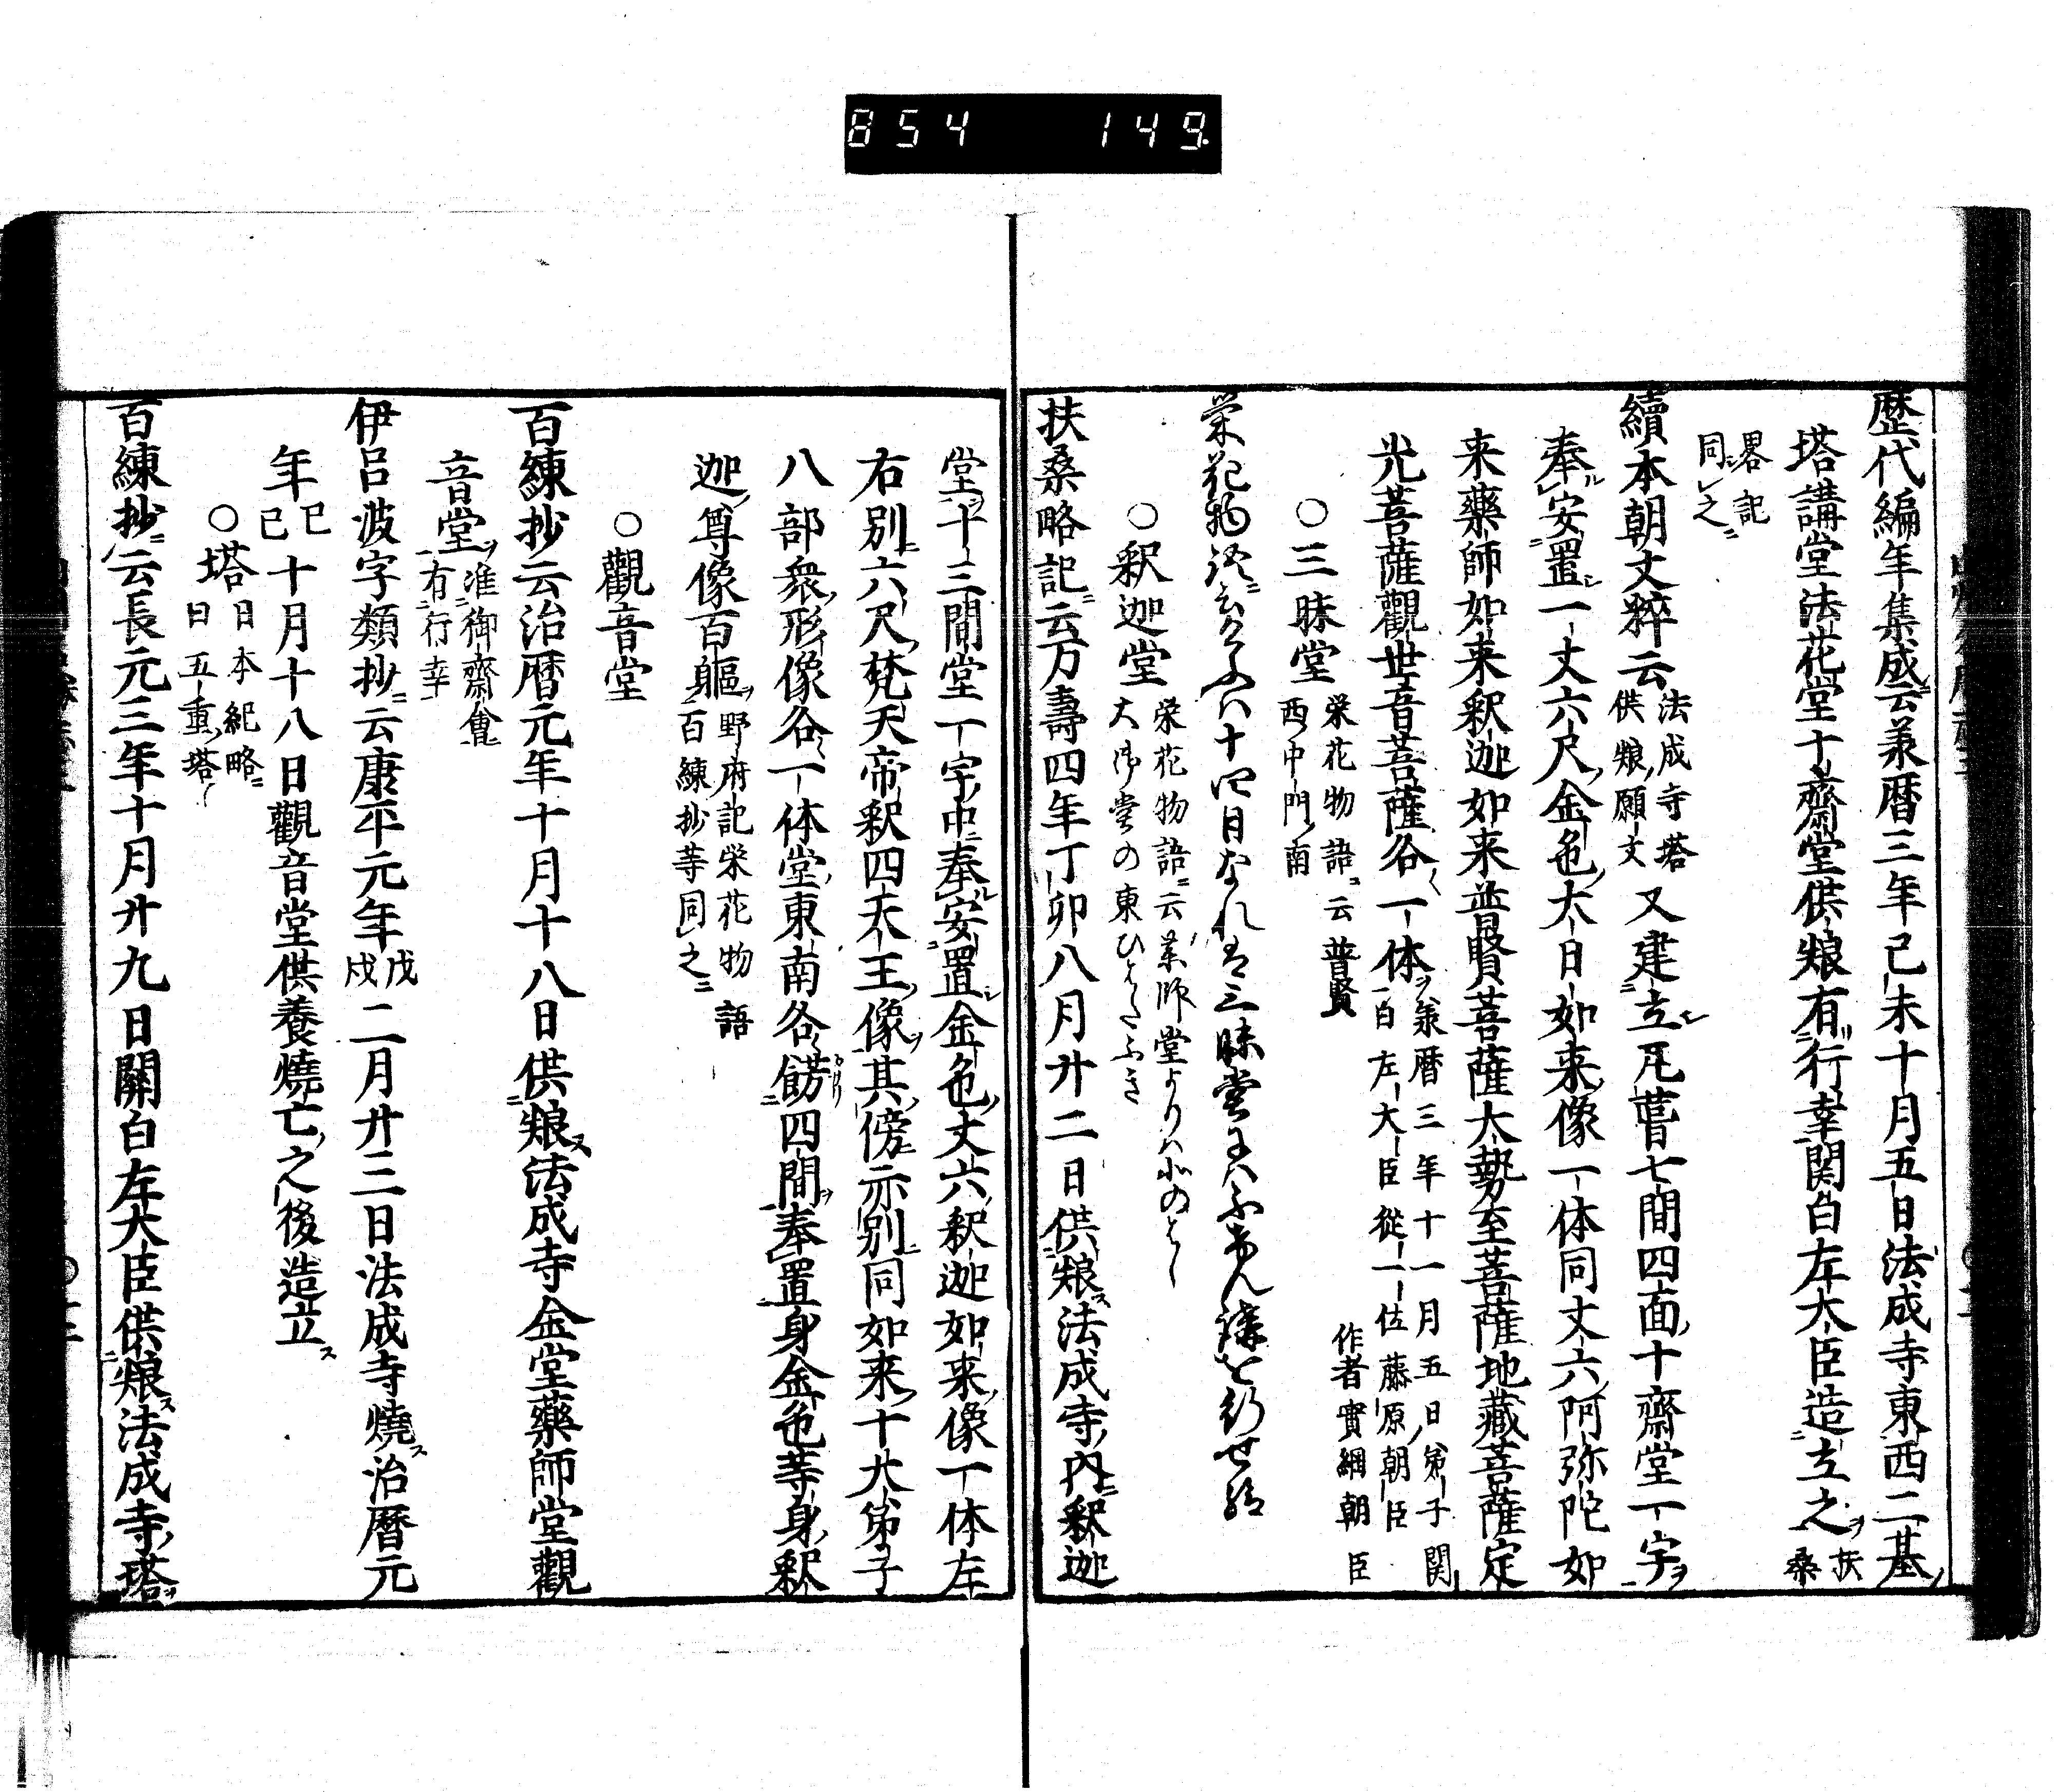 854 149
歴代編年集成云承暦三年己未十月五日法成寺東西二基
塔講堂法花堂十齋堂供粮有行幸関白左大臣造立之 扶桑
畧記同之
續本朝文粹云 法成寺塔供粮願文 又建立瓦葺七間四面十齋堂一宇
奉安置一丈六尺金色大日如来像一体同丈六阿弥陀如
来藥師如来釈迦如来普賢菩薩大勢至菩薩地藏菩薩定
光菩薩觀世音菩薩各一体 承暦三年十一月五日弟子関白左大臣従一位藤原朝臣
作者實綱朝臣
○三昧堂 栄花物語云普賢西中門南
栄花物语云
十四日なれは三昧堂には
○釈迦堂 栄花物語云薬師堂よりは北の
大御堂の東ひはたふき
扶桑略記云万壽四年丁卯八月廿二日供粮法成寺内釈迦
堂十三間堂一宇中奉安置金色丈六釈迦如来像一体左
右別六尺梵天帝釈四天王像其傍亦別同如来十大弟子
八部衆形像各一体堂東南各餝四間奉置身金色等身釈
迦尊像百軀 野府記栄花物語百練抄等同之
○觀音堂
百練抄云治暦元年十月十八日供粮法成寺金堂藥師堂觀
音堂 准御齋會有行幸
伊呂波字類抄云康平元年戊戌二月廿三日法成寺燒治暦元
年乙巳十月十八日觀音堂供養燒亡之後造立
○塔 日本紀略曰五重塔
百練抄云長元三年十月廿九日關白左大臣供粮法成寺塔